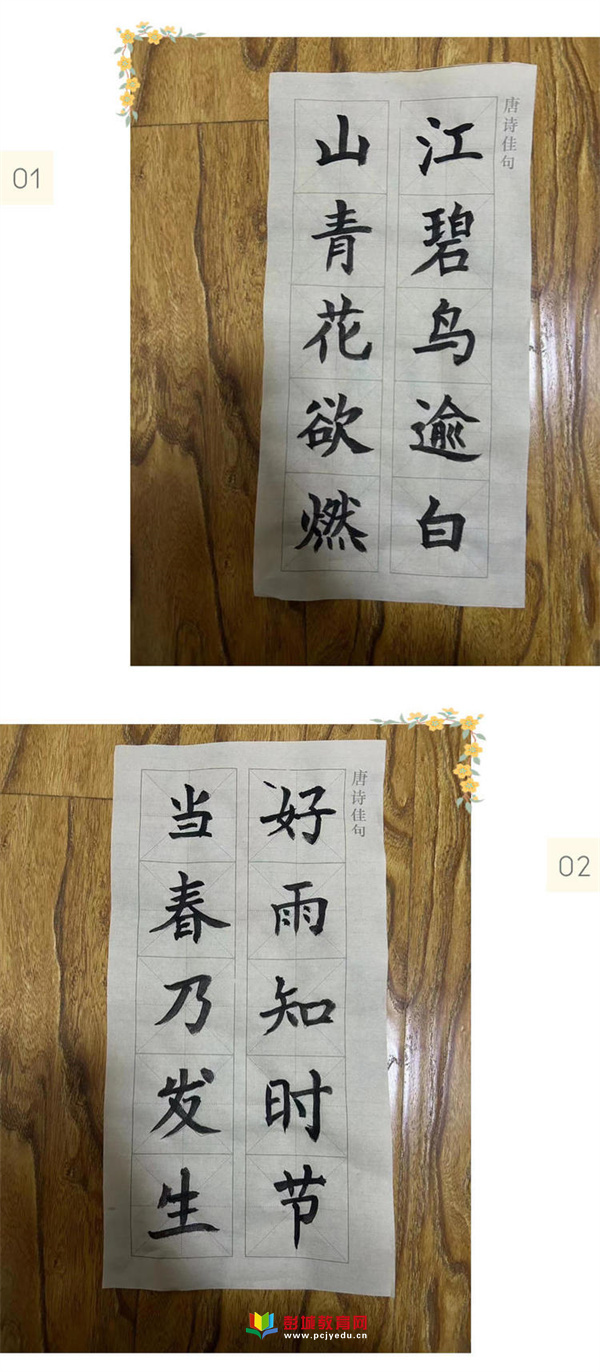 01
唐诗佳句
江碧鸟逾白
山青花欲燃
02
唐诗佳句
好雨知时节
当春乃发生
彭城教育网
www.pcjyedu.cn